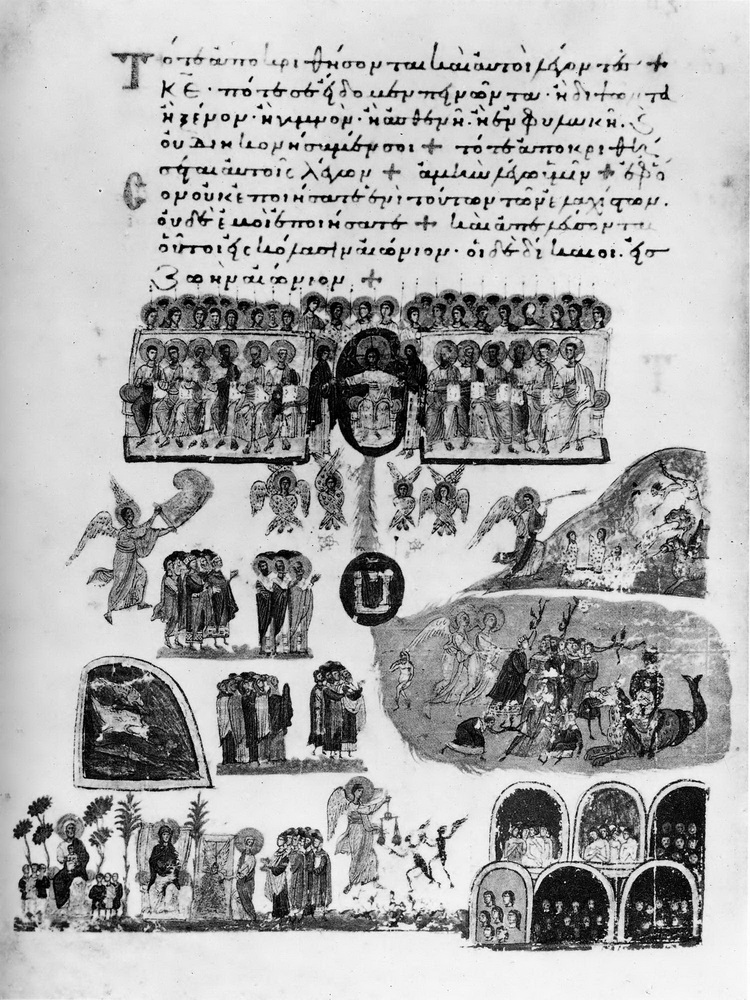 Τότε ἀποκριθήσονται καὶ αὐτοὶ λέγοντες +
ΚΕ· πότε σε εἴδομεν πεινῶντα· ἢ διψῶντα
ἢ ξένον· ἢ γυμνὸν· ἢ ἀσθενῆ· ἢ ἐν φυλακῆ· καὶ
οὐ διηκονήσαμέν σοι + τότε ἀποκριθή
σεται αὐτοῖς λέγων + ἀμὴν λέγω ὑμῖν + ἐφ ὅ
σον οὐκ ἐποιήσατε ἑνὶ τούτων τῶν ἐλαχίστων.
οὐδὲ ἐμοὶ ἐποιήσατε + καὶ ἀπελεύσονται
οὗτοι εἰς κόλασιν αἰώνιον· οἱ δὲ δίκαιοι. εἰς
ζωὴν αἰώνιον +